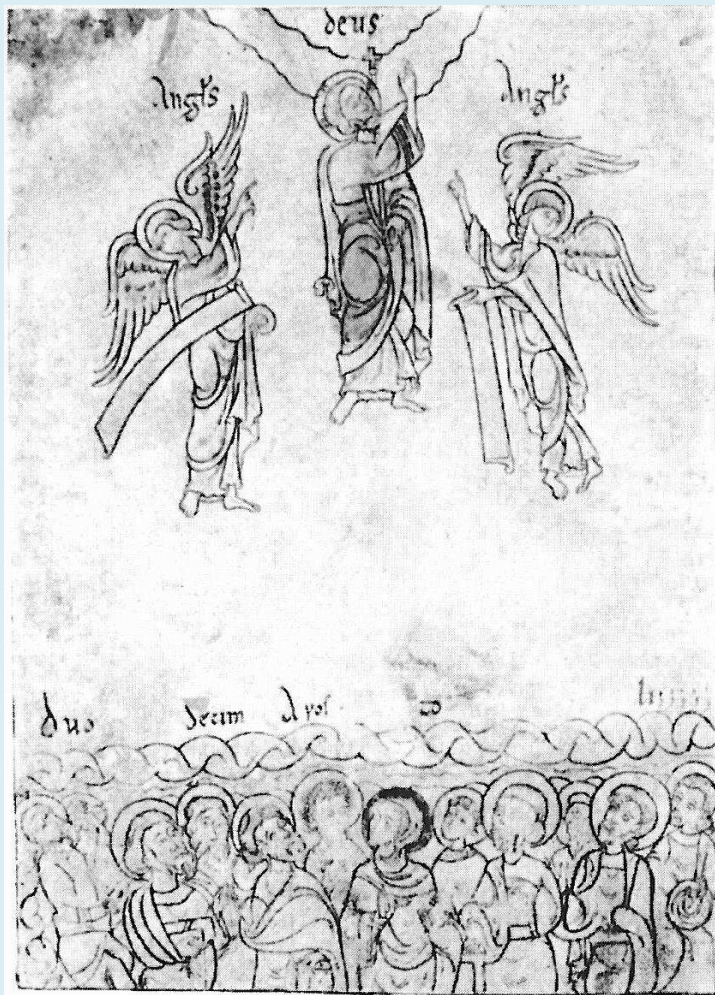 deus
Angls Angls
duo decim Apos